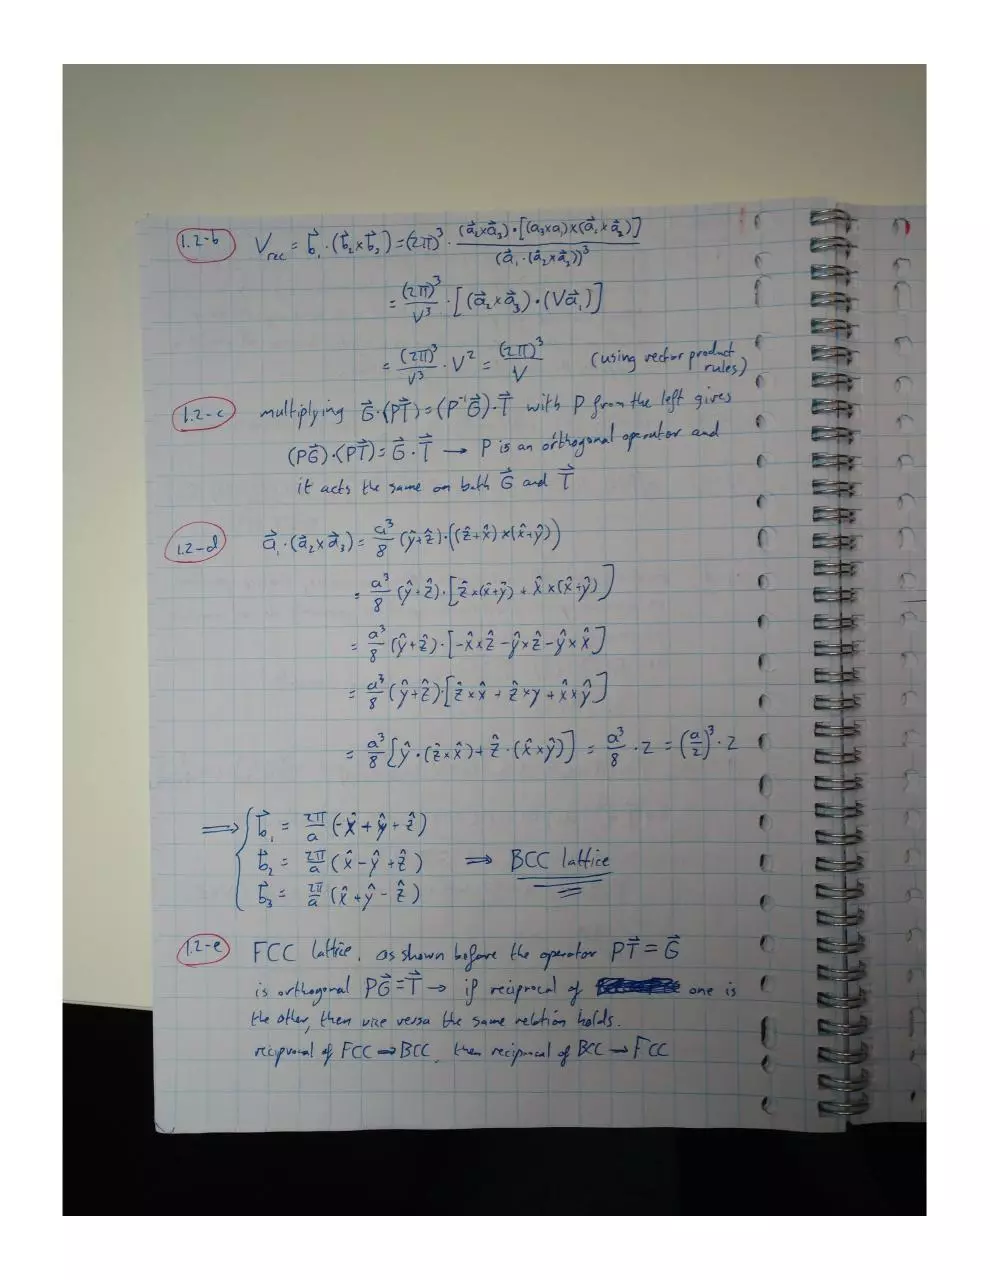 1.2-b V_rec = b⃗₁·(b⃗₂×b⃗₃) = (2π)³ · (a⃗₂×a⃗₃)·[(a₃×a₁)×(a⃗₁×a⃗₂)] / (a⃗₁·(a⃗₂×a⃗₃))³
= (2π)³/V³ · [(a⃗₂×a⃗₃)·(Va⃗₁)]
= (2π)³/V³ · V² = (2π)³/V (using vector product rules)
1.2-c multiplying G⃗·(PT⃗) = (P⁻¹G⃗)·T⃗ with P from the left gives
(PG⃗)·(PT⃗) = G⃗·T⃗ → P is an orthogonal operator and
it acts the same on both G⃗ and T⃗
1.2-d a⃗₁·(a⃗₂×a⃗₃) = a³/8 (ŷ+ẑ)·((ẑ+x̂)×(x̂+ŷ))
= a³/8 (ŷ+ẑ)·[ẑ×(x̂+ŷ) + x̂×(x̂+ŷ)]
= a³/8 (ŷ+ẑ)·[-x̂×ẑ - ŷ×ẑ - ŷ×x̂]
= a³/8 (ŷ+ẑ)·[ẑ×x̂ + ẑ×y + x̂×ŷ]
= a³/8 [ŷ·(ẑ×x̂) + ẑ·(x̂×ŷ)] = a³/8 · 2 = (a/2)³ · 2
⟹ { b⃗₁ = 2π/a (-x̂+ŷ+ẑ)
b⃗₂ = 2π/a (x̂-ŷ+ẑ) ⟹ BCC lattice
b⃗₃ = 2π/a (x̂+ŷ-ẑ)
1.2-e FCC lattice, as shown before the operator PT⃗ = G⃗
is orthogonal PG⃗ = T⃗ → if reciprocal of one is
the other, then vice versa the same relation holds.
reciprocal of FCC → BCC, then reciprocal of BCC → FCC